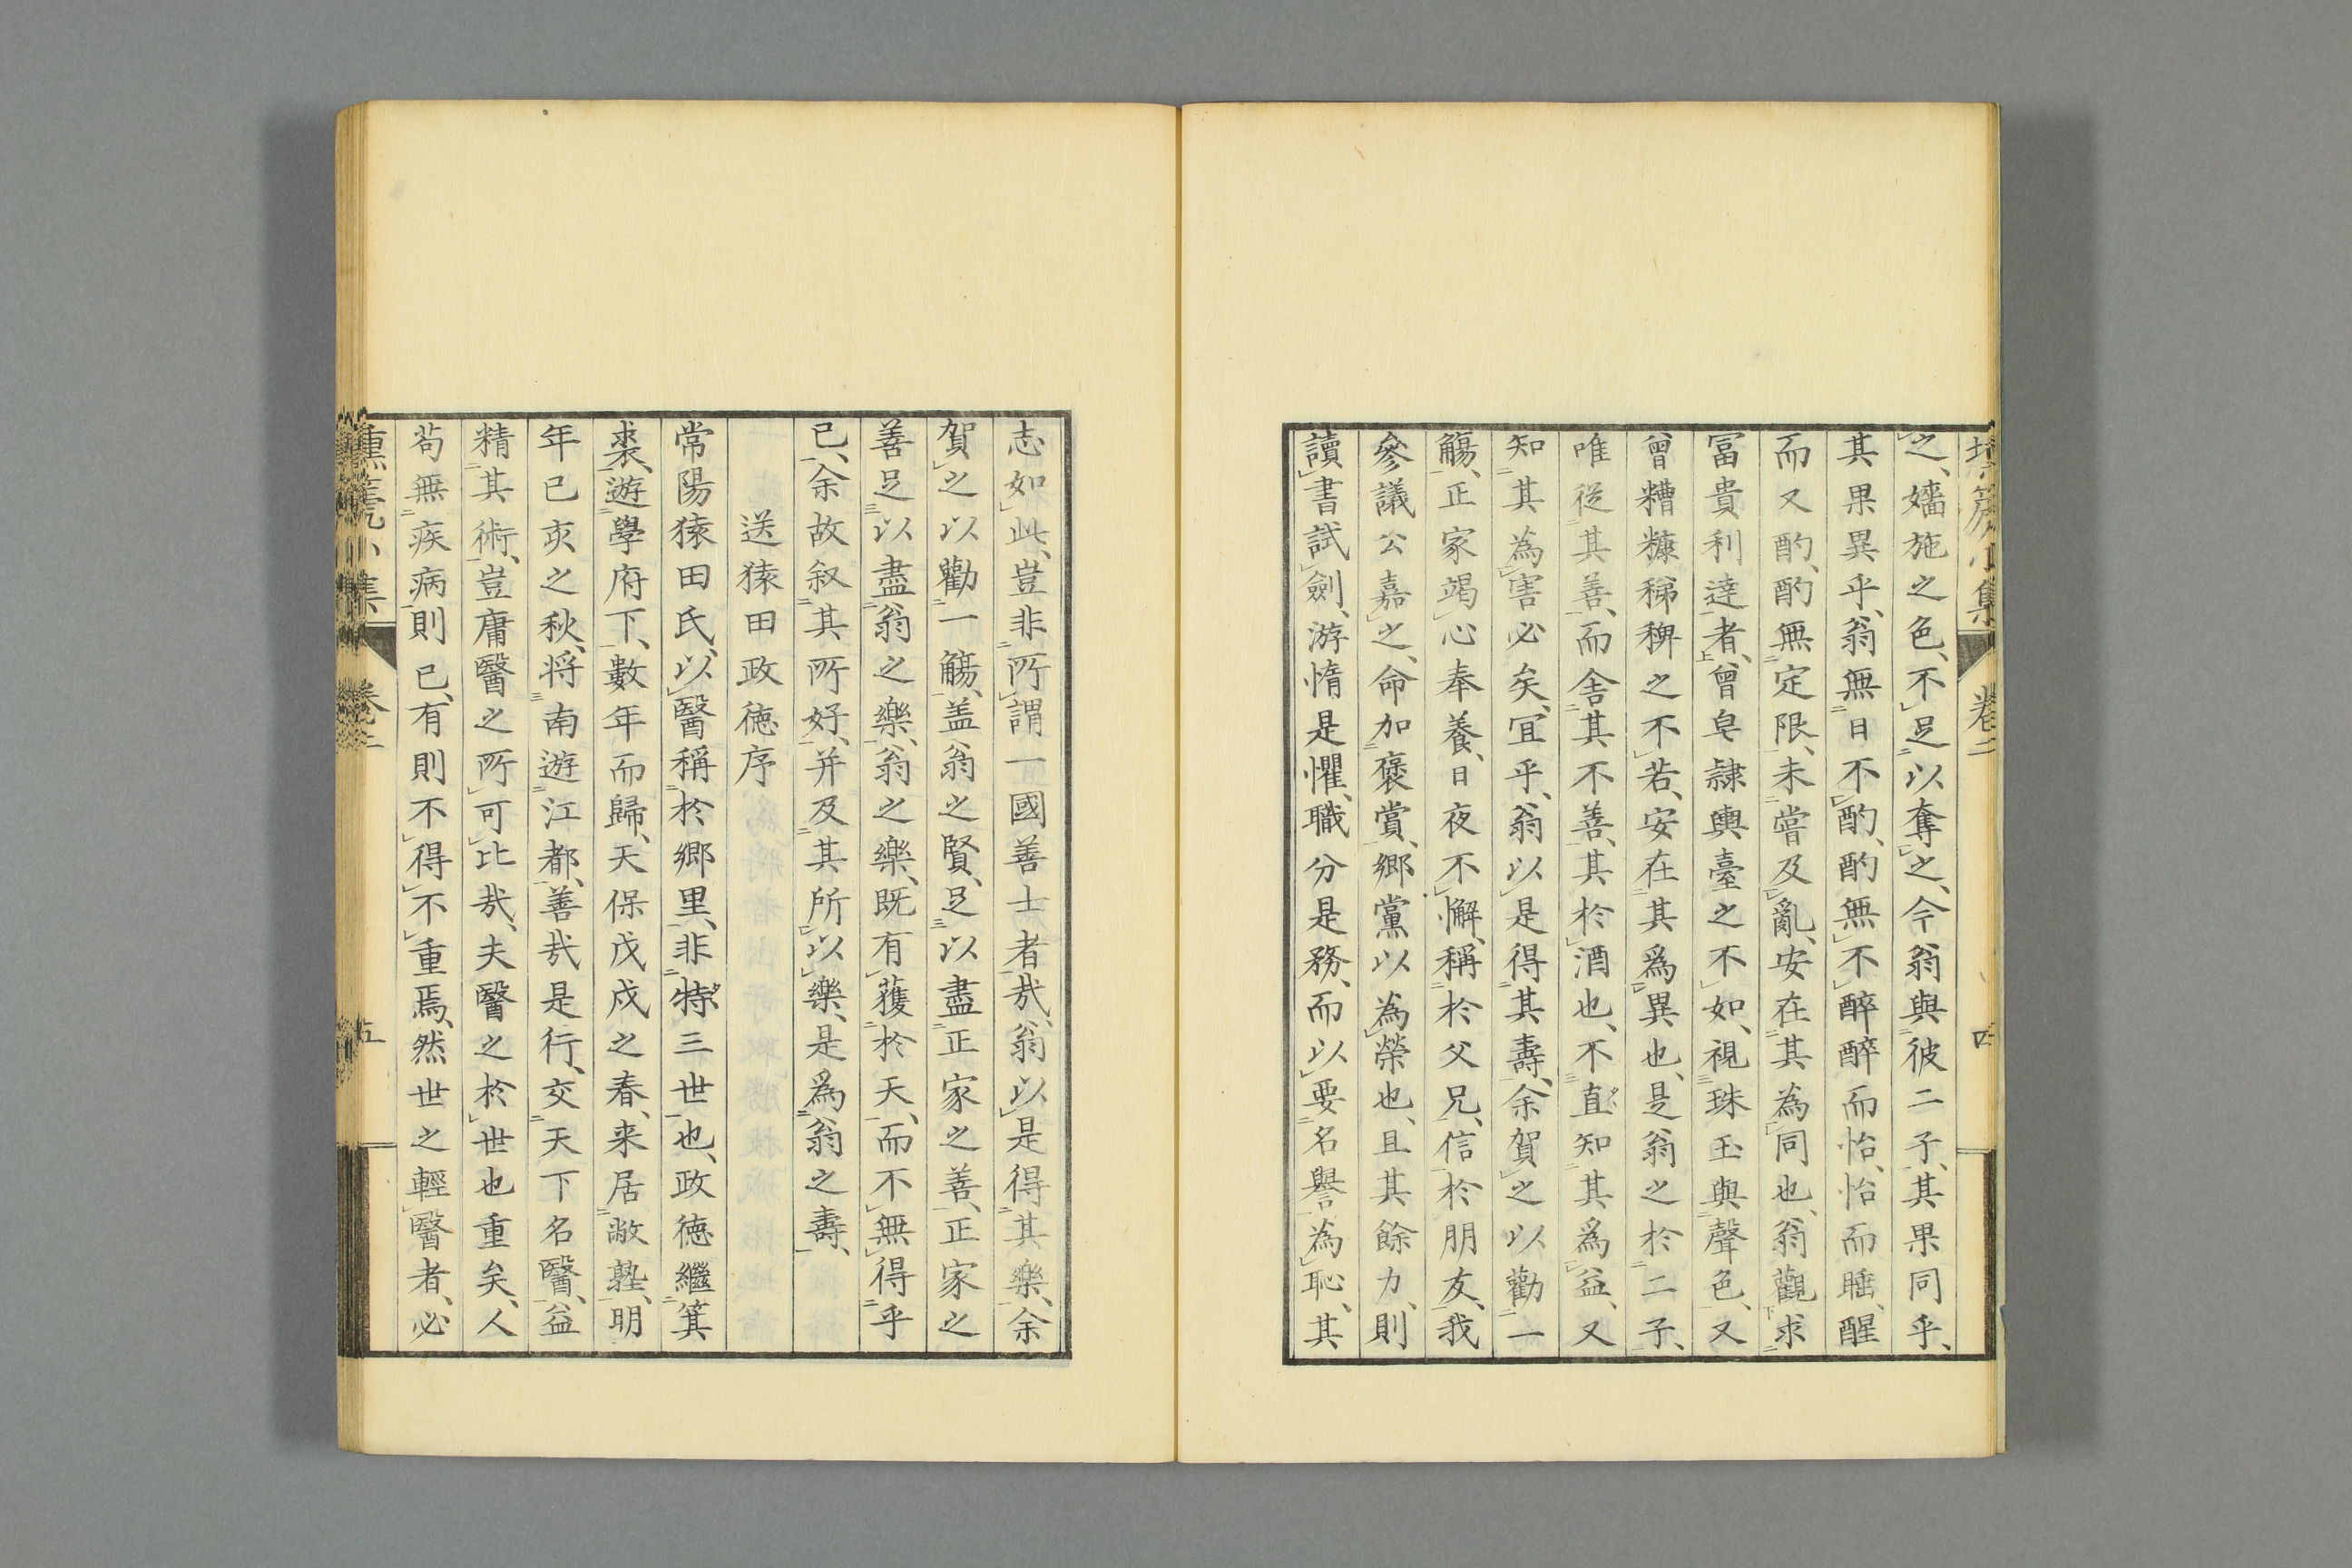 之、嬙施之色、不足以奪之、今翁與彼二子、其果同乎、
其果異乎、翁無日不酌、酌無不醉醉而怡、怡而睡、醒
而又酌、酌無定限、未嘗及亂、安在其為同也、翁觀求
冨貴利達者、曾皁隷輿臺之不如、視珠玉與聲色、又
曾糟糠稊稗之不若、安在其爲異也、是翁之於二子、
唯従其善、而舎其不善、其於酒也、不直知其爲益、又
知其為害必矣、冝乎、翁以是得其壽、余賀之以勸一
觴、正家竭心奉養、日夜不懈、稱於父兄、信於朋友、我
參議公嘉之、命加褒賞、郷黨以為榮也、且其餘力、則
讀書試劍、游惰是懼、職分是務、而以要名譽為恥、其
卷二
四
志如此、豈非所謂一國善士者哉、翁以是得其樂、余
賀之以勸一觴、盖翁之賢、足以盡正家之善、正家之
善足以盡翁之樂、翁之樂、既有獲於天、而不無得乎
已、余故叙其所好、并及其所以樂、是爲翁之壽、
送猿田政徳序
常陽猿田氏、以醫稱於郷里、非特三世也、政徳繼箕
裘、遊學府下、數年而歸、天保戊戌之春、来居敝塾、明
年已亥之秋、将南遊江都、善哉是行、交天下名醫、益
精其術、豈庸醫之所可比哉、夫醫之於世也重矣、人
茍無疾病則已、有則不得不重焉、然世之輕醫者、必
卷二
五